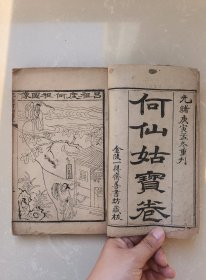 光緒庚寅孟冬重刊
何仙姑寶卷
金陵一得齋善書坊藏板
呂祖度何祖圖像